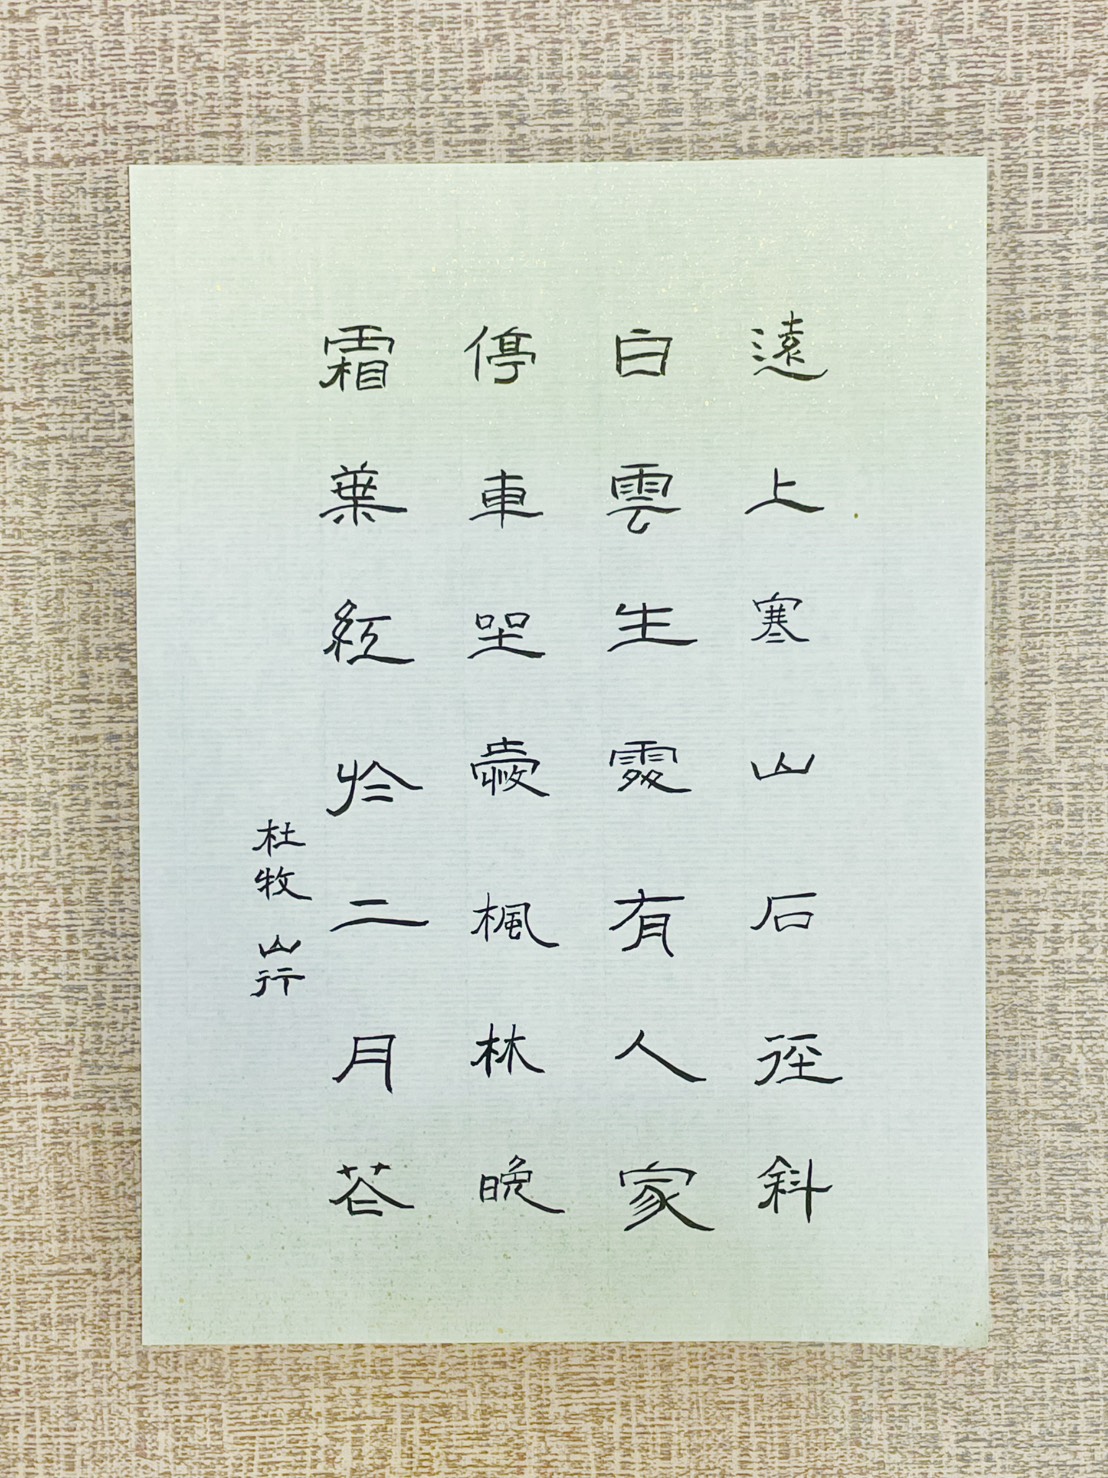 遠上寒山石徑斜
白雲生處有人家
停車坐愛楓林晚
霜葉紅於二月花
杜牧 山行